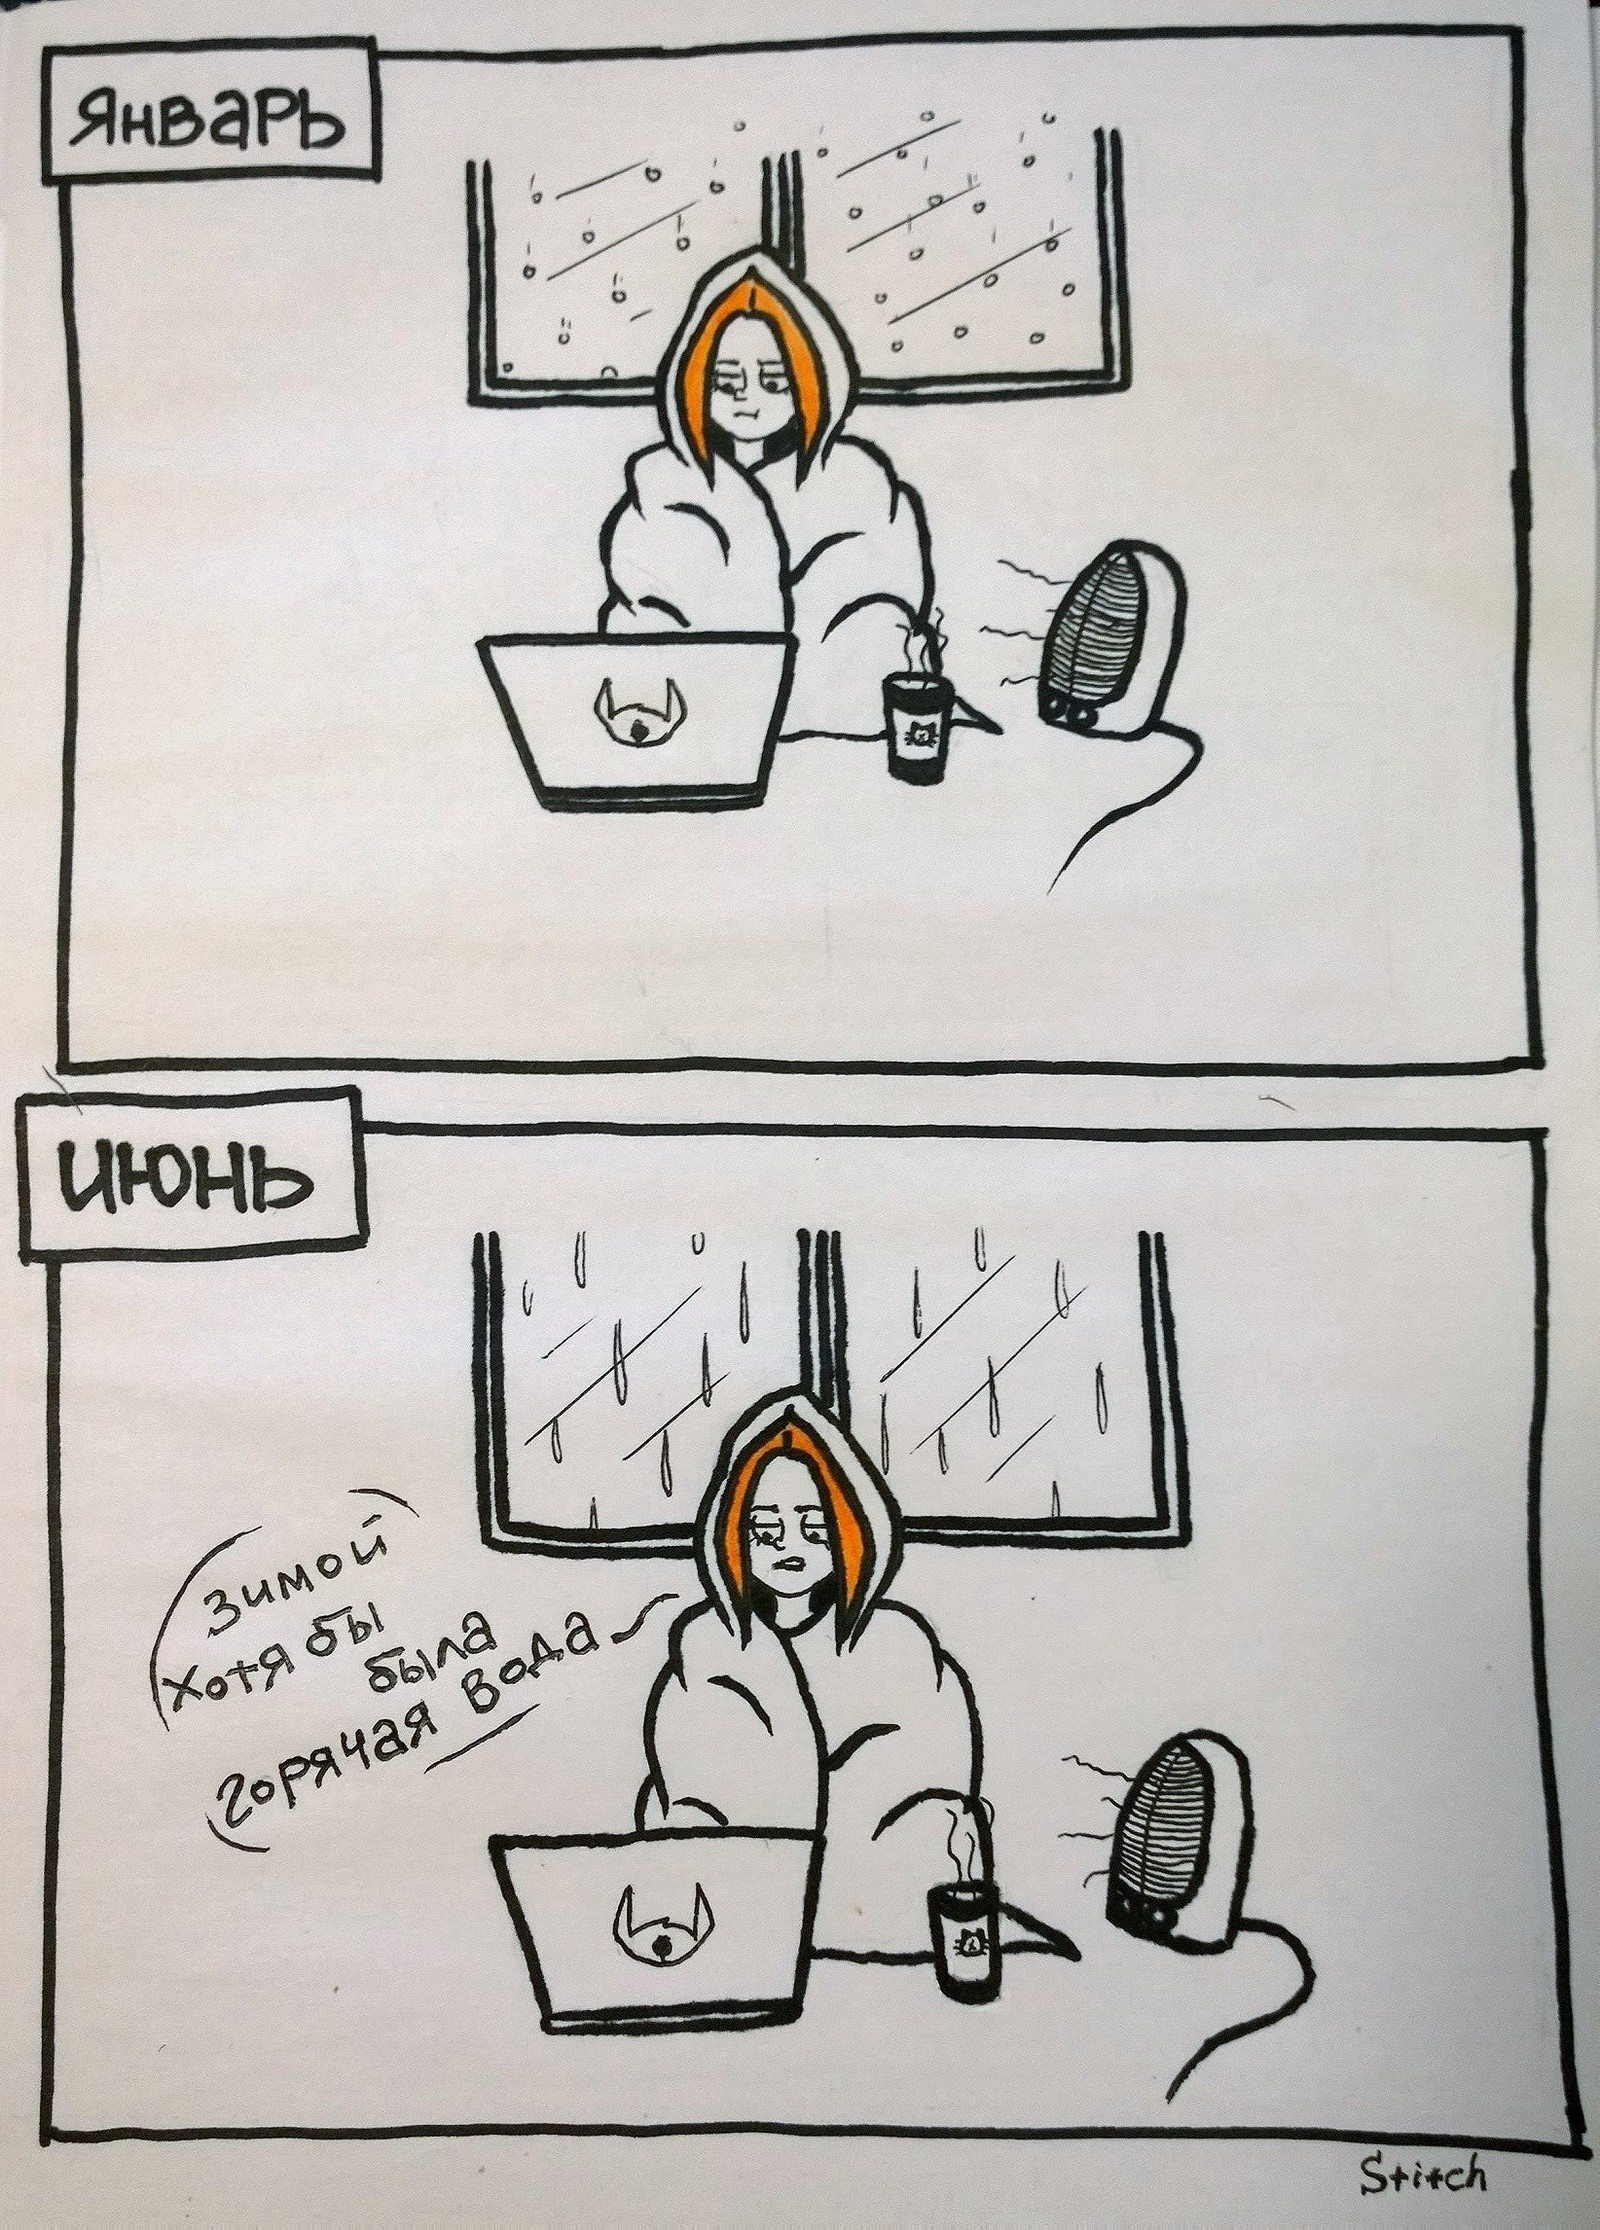 Январь
Июнь
Зимой
хотя бы
была
горячая вода
Stitch